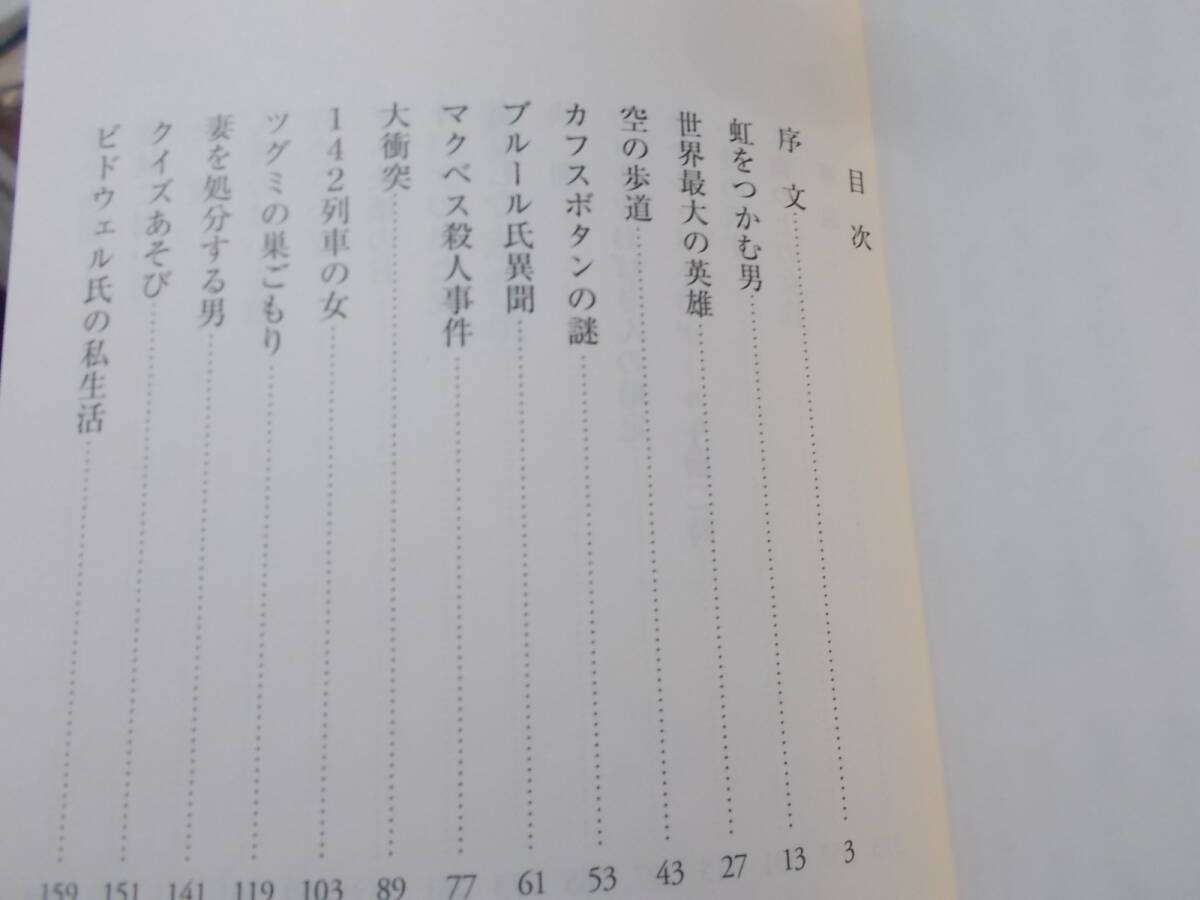 目次
序文 3
虹をつかむ男 13
世界最大の英雄 27
空の歩道 43
カフスボタンの謎 53
ブルール氏異聞 61
マクベス殺人事件 77
大衝突 89
142列車の女 103
ツグミの巣ごもり 119
妻を処分する男 141
クイズあそび 151
ビドウェル氏の私生活 159